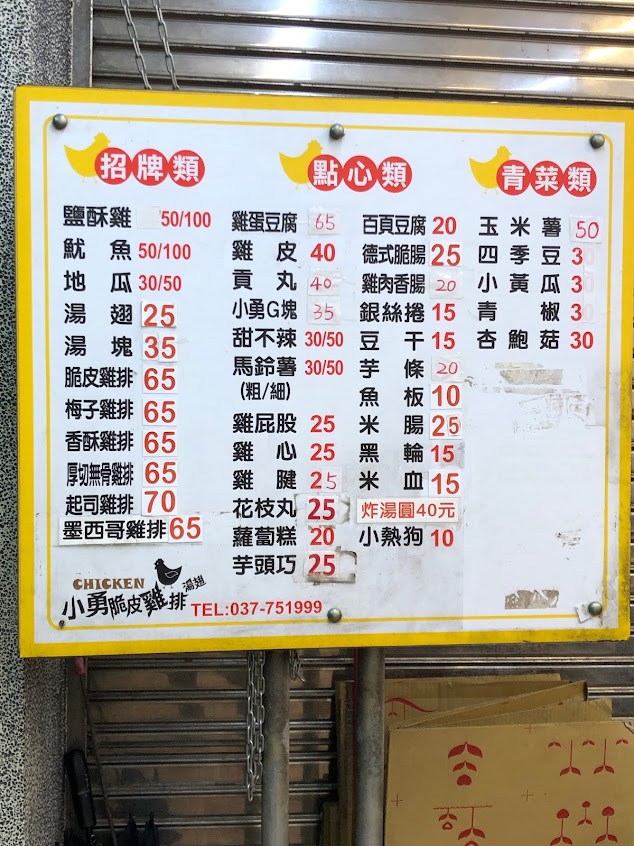 招牌類
鹽酥雞 50/100
魷魚 50/100
地瓜 30/50
湯翅 25
湯塊 35
脆皮雞排 65
梅子雞排 65
香酥雞排 65
厚切無骨雞排 65
起司雞排 70
墨西哥雞排 65
點心類
雞蛋豆腐 65
雞皮 40
貢丸 40
小勇G塊 35
甜不辣 30/50
馬鈴薯 30/50
(粗/細)
雞屁股 25
雞心 25
雞腱 25
花枝丸 25
蘿蔔糕 20
芋頭巧 25
百頁豆腐 20
德式脆腸 25
雞肉香腸 20
銀絲捲 15
豆干 15
芋條 20
魚板 10
米腸 25
黑輪 15
米血 15
炸湯圓40元
小熱狗 10
青菜類
玉米薯 50
四季豆 30
小黃瓜 30
青椒 30
杏鮑菇 30
CHICKEN
小勇脆皮雞排 湯翅 TEL:037-751999